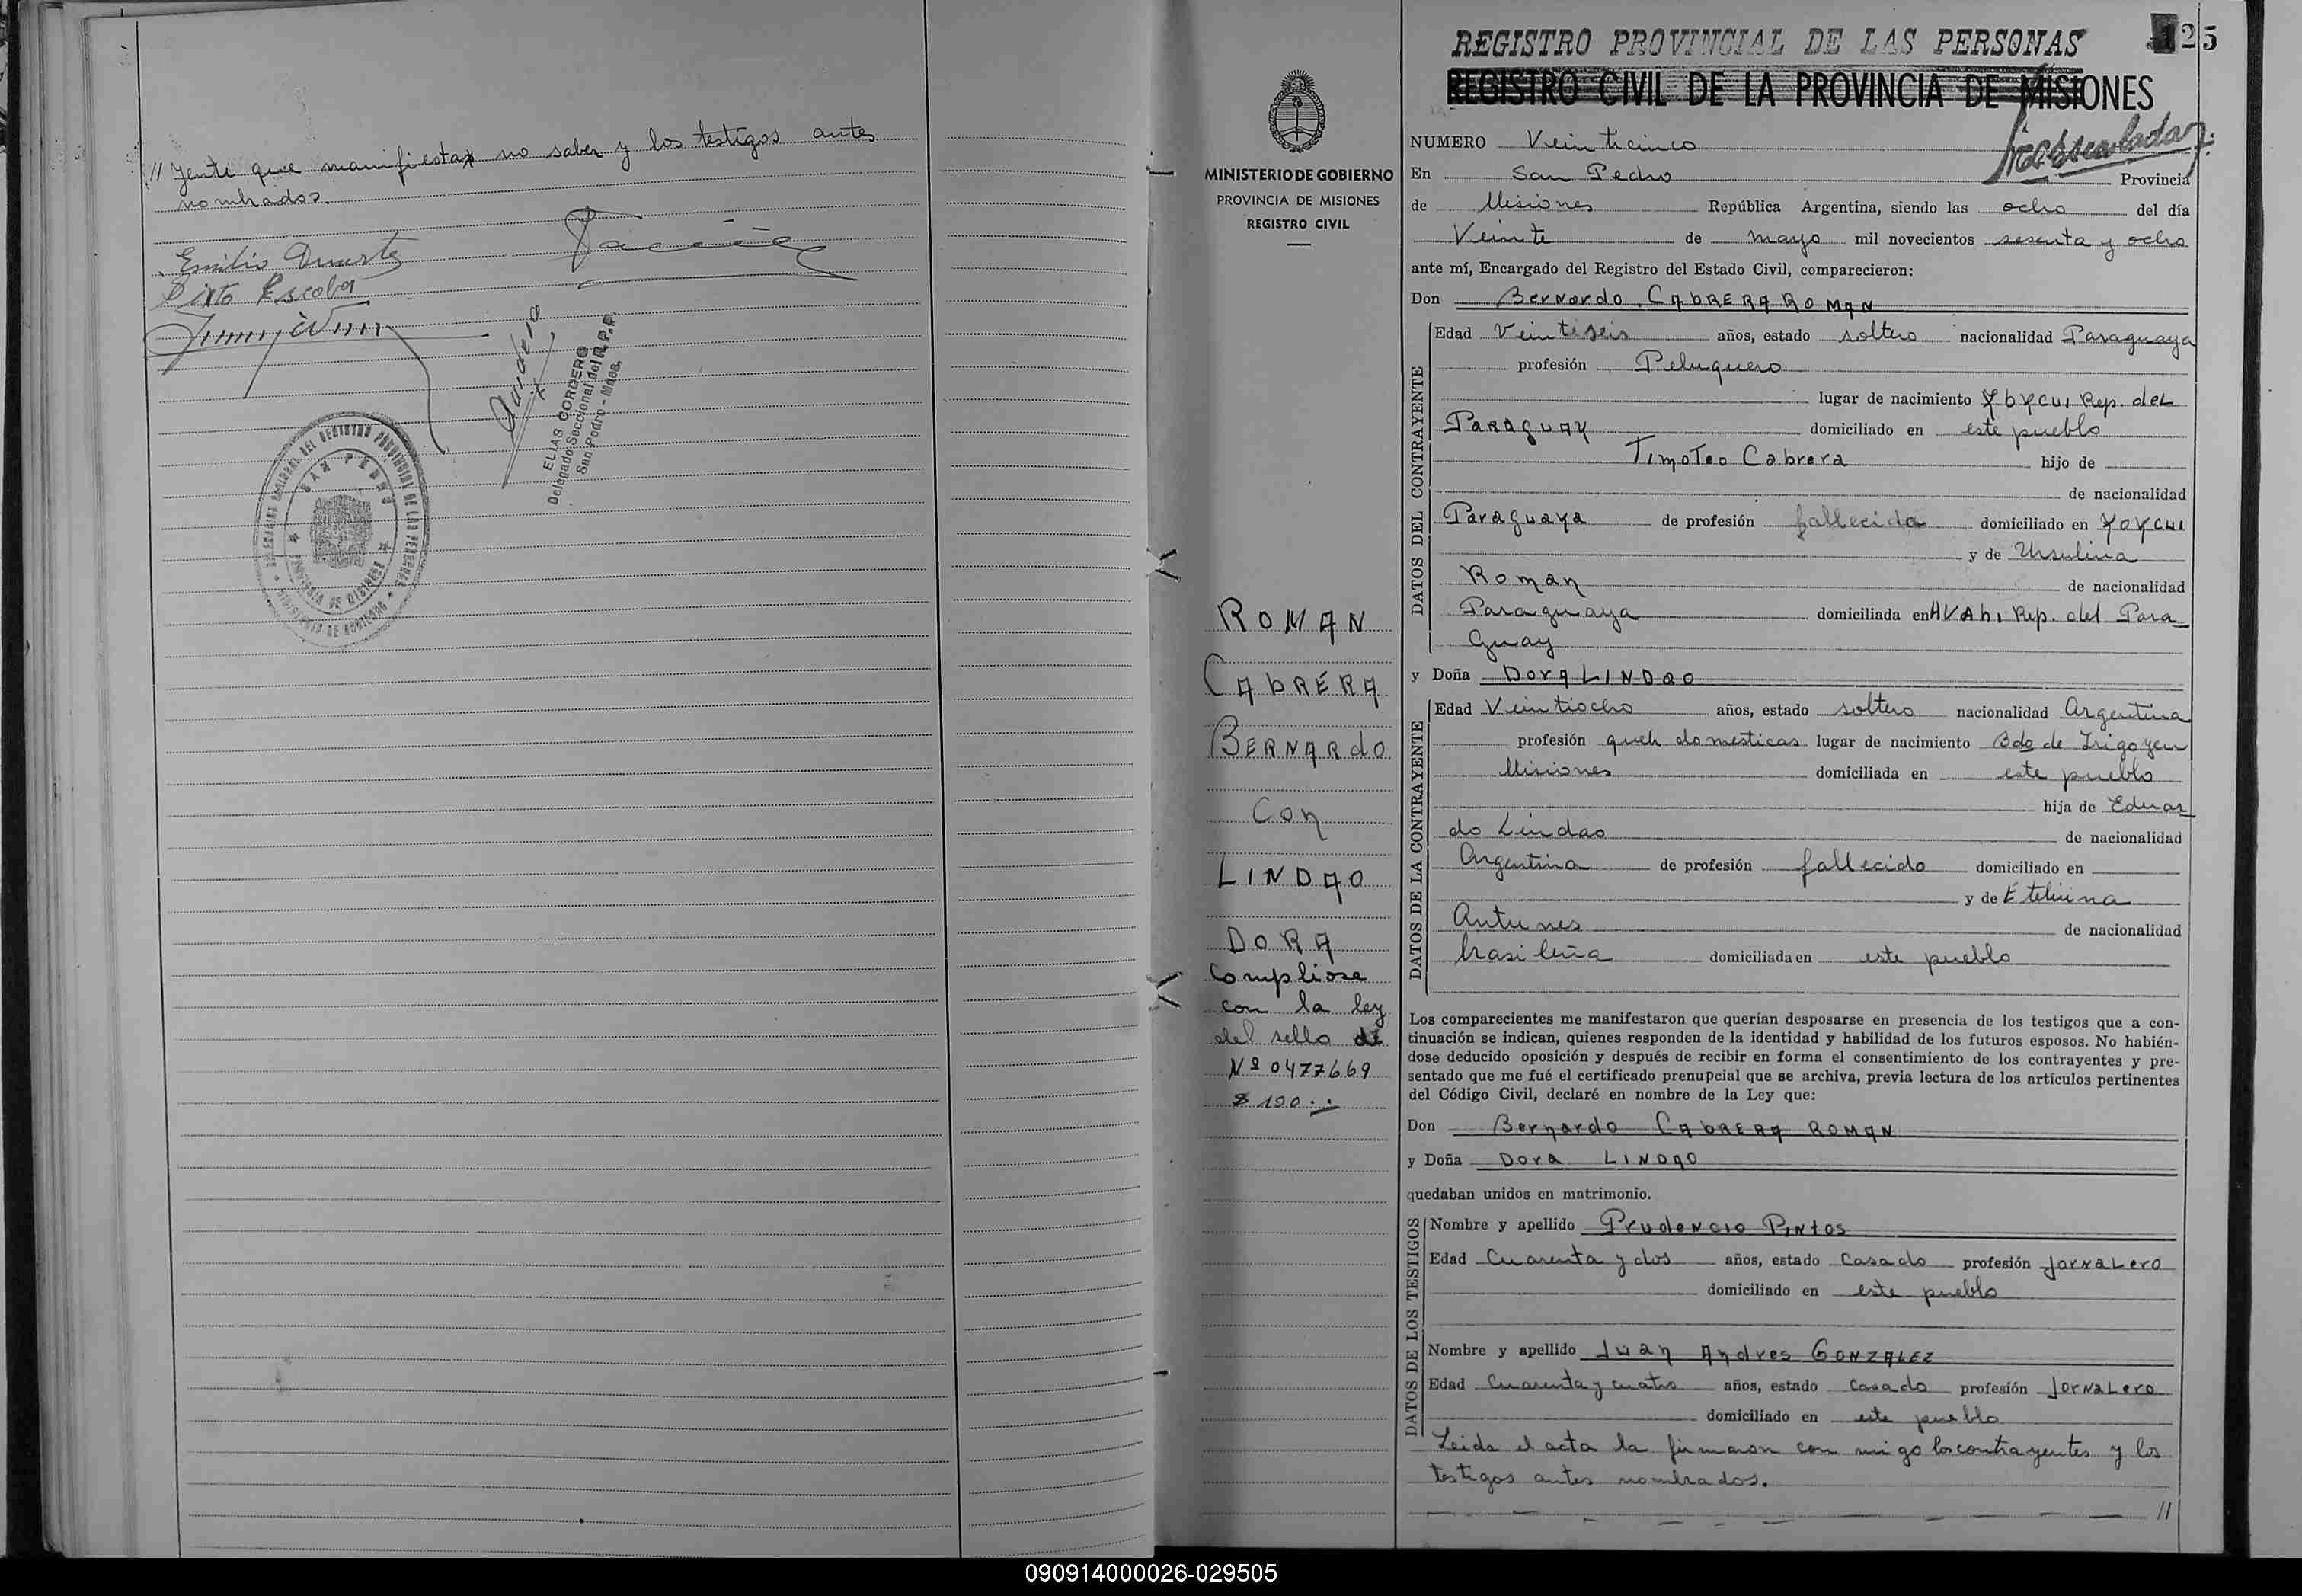 // yente que manifiestan no saber y los testigos antes
nombrados.
Emilio Duarte
Sixto Escobar
ELIAS CORDERO
Delegado Seccional del R.P.P.
San Pedro - Mnes.
SAN PEDRO
PROVINCIA DE MISIONES
MINISTERIO DE GOBIERNO
MINISTERIO DE GOBIERNO
PROVINCIA DE MISIONES
REGISTRO CIVIL
ROMAN
CABRERA
BERNARDO
Con
LINDAO
DORA
Compliose
con la ley
del sello de
Nº 0477669
$ 100.--
REGISTRO PROVINCIAL DE LAS PERSONAS
125
REGISTRO CIVIL DE LA PROVINCIA DE MISIONES
NUMERO Veinticinco
En San Pedro Provincia
de Misiones República Argentina, siendo las ocho del día
Veinte de mayo mil novecientos sesenta y ocho
ante mí, Encargado del Registro del Estado Civil, comparecieron:
Don Bernardo CABRERA ROMAN
DATOS DEL CONTRAYENTE
Edad Veintiseis años, estado soltero nacionalidad Paraguaya
profesión Peluquero
lugar de nacimiento Ybycui Rep. del
Paraguay domiciliado en este pueblo
Timoteo Cabrera hijo de
de nacionalidad
Paraguaya de profesión fallecido domiciliado en Yoycui
y de Ursulina
Roman de nacionalidad
Paraguaya domiciliada en AVAhi Rep. del Para
guay
y Doña Dora LINDAO
DATOS DE LA CONTRAYENTE
Edad Veintiocho años, estado soltero nacionalidad Argentina
profesión queh domesticas lugar de nacimiento Bdo de Irigoyen
Misiones domiciliada en este pueblo
hija de Eduar
do Lindao de nacionalidad
Argentina de profesión fallecido domiciliado en
y de Etelvina
Antunes de nacionalidad
brasileña domiciliada en este pueblo
Los comparecientes me manifestaron que querían desposarse en presencia de los testigos que a con-
tinuación se indican, quienes responden de la identidad y habilidad de los futuros esposos. No habién-
dose deducido oposición y después de recibir en forma el consentimiento de los contrayentes y pre-
sentado que me fué el certificado prenupcial que se archiva, previa lectura de los artículos pertinentes
del Código Civil, declaré en nombre de la Ley que:
Don Bernardo CABRERA ROMAN
y Doña Dora LINDAO
quedaban unidos en matrimonio.
DATOS DE LOS TESTIGOS
Nombre y apellido Prudencio Pintos
Edad Cuarenta y dos años, estado Casado profesión Jornalero
domiciliado en este pueblo
Nombre y apellido Juan Andres GONZALEZ
Edad Cuarenta y cuatro años, estado casado profesión Jornalero
domiciliado en este pueblo
Leida el acta la firmaron con migo los contrayentes y los
testigos antes nombrados.
//
090914000026-029505